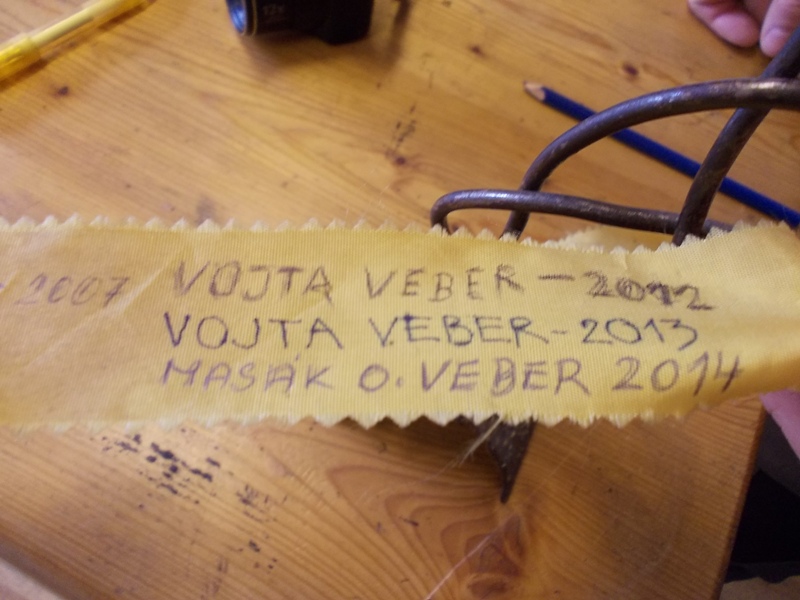 - 2007
VOJTA VEBER - 2012
VOJTA VEBER - 2013
MASÁK O. VEBER 2014
12x